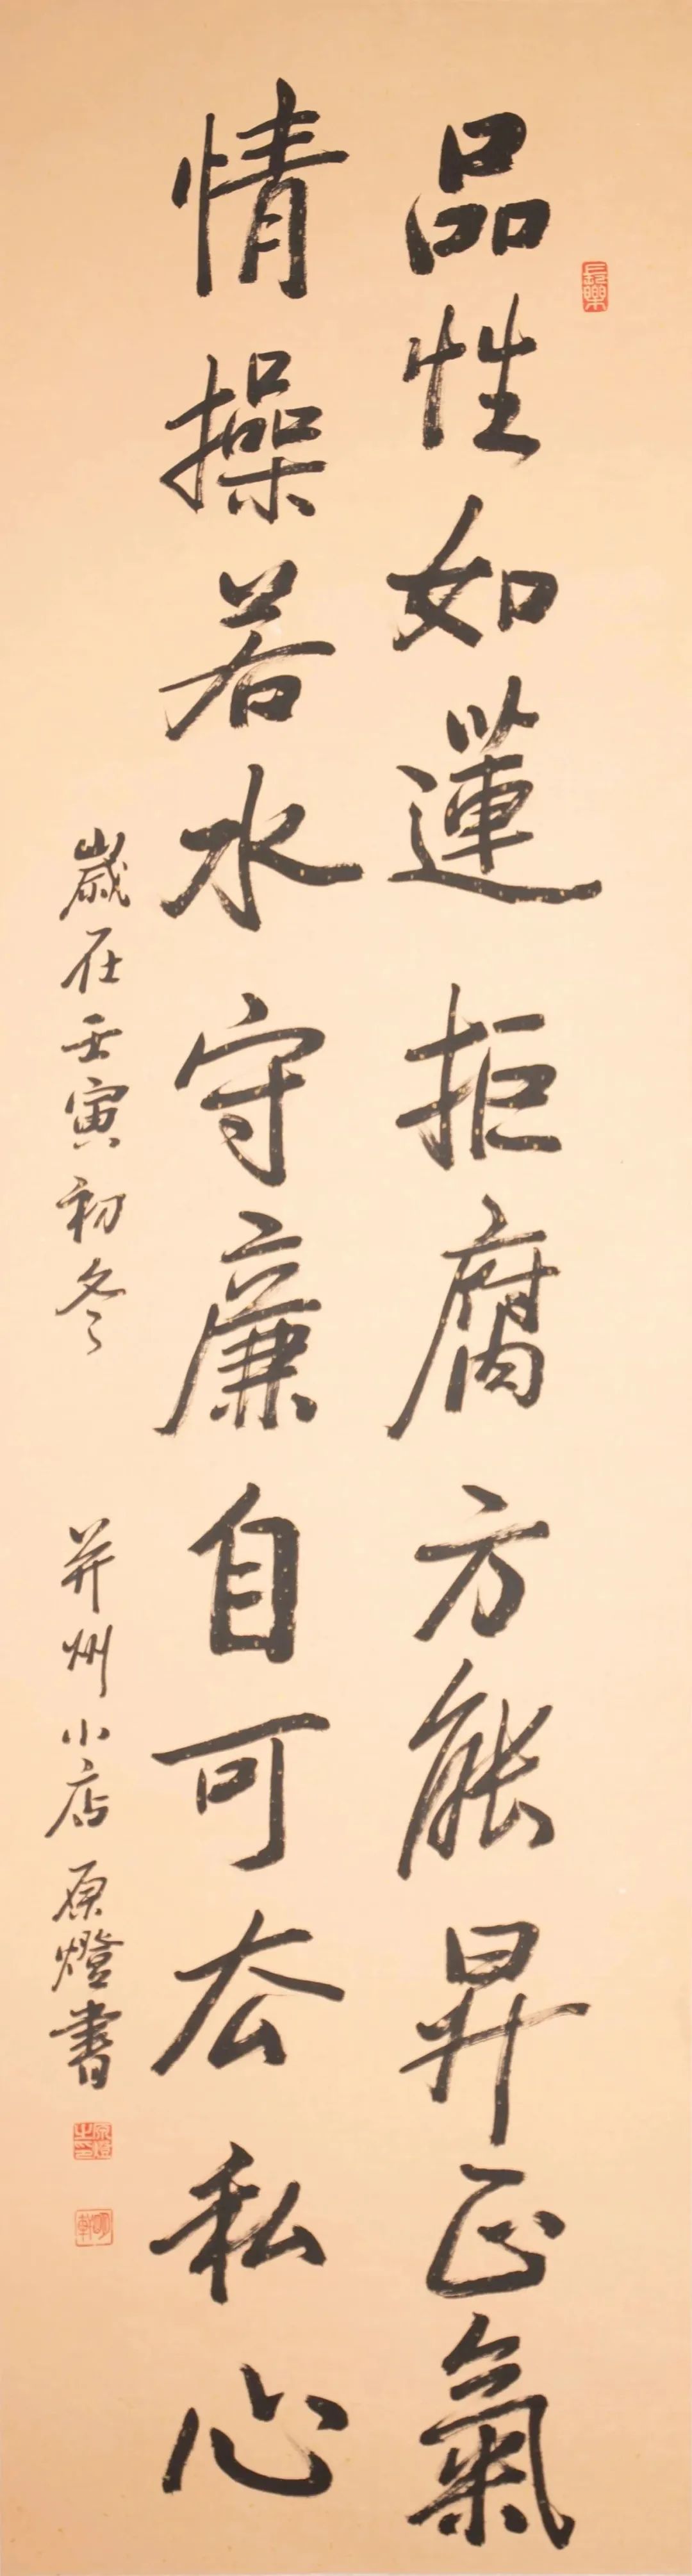 品性如蓮拒腐方能昇正氣
情操若水守廉自可去私心
歲在壬寅初冬 并州小店原燈書